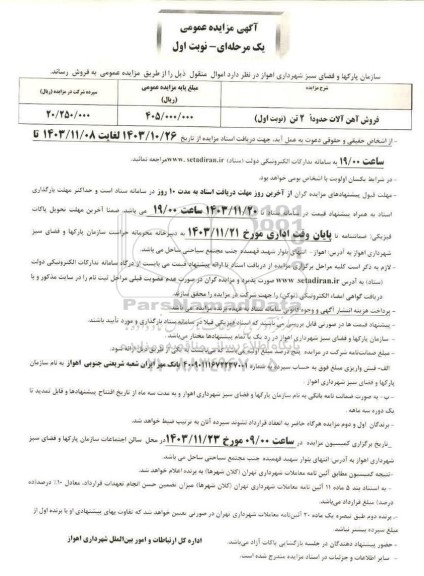 آگهی مزایده عمومی
یک مرحله‌ای- نوبت اول
سازمان پارکها و فضای سبز شهرداری اهواز در نظر دارد اموال منقول ذیل را از طریق مزایده عمومی به فروش رساند.
شرح مزایده	مبلغ پایه مزایده عمومی (ریال)	سپرده شرکت در مزایده (ریال)
فروش آهن آلات حدوداً ۲ تن (نوبت اول)	۴۰۵/۰۰۰/۰۰۰	۲۰/۲۵۰/۰۰۰
- از اشخاص حقیقی و حقوقی دعوت به عمل آید، جهت دریافت اسناد مزایده از تاریخ ۱۴۰۳/۱۰/۲۶ لغایت ۱۴۰۳/۱۱/۰۸ تا
ساعت ۱۹/۰۰ به سامانه تدارکات الکترونیکی دولت (ستاد) www.setadiran.ir مراجعه نمایید.
- در شرایط یکسان اولویت با اشخاص بومی خواهد بود.
- مهلت قبول پیشنهادهای مزایده گران از آخرین روز مهلت دریافت اسناد به مدت ۱۰ روز در سامانه ستاد است و حداکثر مهلت بارگذاری
اسناد به همراه پیشنهاد قیمت در سامانه ستاد تا ۱۴۰۳/۱۱/۲۰ ساعت ۱۹/۰۰ می باشد. ضمناً آخرین مهلت تحویل پاکات
فیزیکی: ضمانتنامه تا پایان وقت اداری مورخ ۱۴۰۳/۱۱/۲۱ به دبیرخانه محرمانه حراست سازمان پارکها و فضای سبز
شهرداری اهواز به آدرس: اهواز- انتهای بلوار شهید فهمیده جنب مجتمع سیاحتی ساحل می باشد.
- لازم به ذکر است کلیه مراحل برگزاری مزایده از دریافت اسناد تا ارائه پیشنهاد قیمت می بایست از درگاه سامانه تدارکات الکترونیکی دولت
(ستاد) به آدرس www.setadiran.ir صورت پذیرد و مزایده گران در صورت عدم عضویت قبلی مراحل ثبت نام را در سایت مذکور و یا
دریافت گواهی امضاء الکترونیکی (توکن) را جهت شرکت در مزایده را محقق سازند.
- پرداخت هزینه انتشار آگهی و
- پیشنهاد قیمت ها در صورتی قابل بررسی می باشند که اسناد فیزیکی قبلاً در سامانه ستاد بارگذاری و مورد تأیید باشند.
- سازمان پارکها و فضای سبز شهرداری اهواز در رد یک یا تمام پیشنهادها مختار می‌باشد.
- مبلغ ضمانت‌نامه شرکت در مزایده پنج درصد مبلغ اولیه می باشد که می‌بایست به یکی از طریق ذیل ارائه شود.
الف- فیش واریزی مبلغ فوق به حساب سپرده به شماره ۴۰۰۹۰۱۱۱۶۷۲۲۳۷۰۰۱ بانک مهر ایران شعبه شریعتی جنوبی اهواز به نام سازمان
پارکها و فضای سبز شهرداری اهواز.
- ب - به صورت ضمانت نامه بانکی به نام سازمان پارکها و فضای سبز شهرداری اهواز و به مدت سه ماه از تاریخ افتتاح پیشنهادها و قابل تمدید تا
یک دوره سه ماهه.
- برندگان اول و دوم مزایده هرگاه حاضر به انعقاد قرارداد نشوند سپرده آنان به ترتیب ضبط خواهد شد.
-تاریخ برگزاری کمیسیون مزایده در ساعت ۰۹/۰۰ مورخ ۱۴۰۳/۱۱/۲۳ در محل سالن اجتماعات سازمان پارکها و فضای سبز
شهرداری اهواز به آدرس: انتهای بلوار شهید فهمیده جنب مجتمع سیاحتی ساحل می باشد.
-نتیجه کمیسیون مطابق آئین نامه معاملات شهرداری تهران (کلان شهرها) به برنده اعلام خواهد شد.
- به استناد بند ۵ ماده ۱۱ آئین نامه معاملات شهرداری تهران (کلان شهرها) میزان تضمین حسن انجام تعهدات قرارداد، معادل ۱۰٪ (ده‌صد)
درصد) مبلغ قرارداد می‌باشد.
- برنده دوم طبق تبصره یک ماده ۲۰ آئین‌نامه معاملات شهرداری تهران در صورتی تعیین خواهد شد که تفاوت بهای پیشنهادی او با برنده اول از
مبلغ سپرده بیشتر نباشد.
- حضور پیشنهاد دهندگان در جلسه بازگشایی پاکات آزاد می‌باشد.
- سایر اطلاعات و جزئیات در اسناد مزایده مندرج شده است.
اداره کل ارتباطات و امور بین‌الملل شهرداری اهواز
ParsNamadData